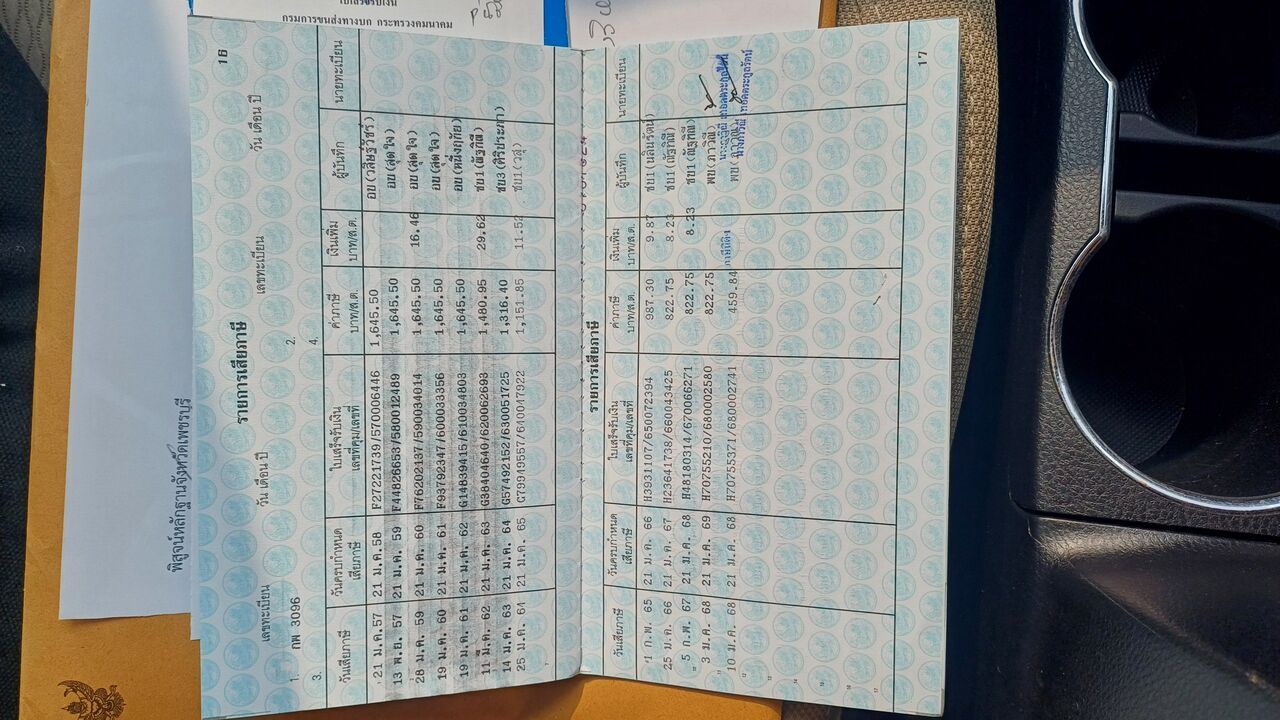 ใบเสร็จรับเงิน
กรมการขนส่งทางบก กระทรวงคมนาคม
พิสูจน์หลักฐานจังหวัดเพชรบุรี
16
รายการเสียภาษี
เลขทะเบียน วัน เดือน ปี เลขทะเบียน วัน เดือน ปี
1. กพ 3096 2.
3. 4.
วันเสียภาษี วันครบกำหนดเสียภาษี ใบเสร็จรับเงิน เลขที่คุม/เลขที่ ค่าภาษี บาท/ส.ต. เงินเพิ่ม บาท/ส.ต. ผู้บันทึก นายทะเบียน
21 ม.ค.57 21 ม.ค.58 F27221739/570006446 1,645.50 อบ(วสิษฐ์วัชร์)
13 พ.ย. 57 21 ม.ค. 59 F44826653/580012489 1,645.50 อบ(สุดใจ)
28 ม.ค. 59 21 ม.ค. 60 F76202137/590034014 1,645.50 16.46 อบ(สุดใจ)
19 ม.ค. 60 21 ม.ค. 61 F93792347/600033356 1,645.50 อบ(สุดใจ)
19 ม.ค. 61 21 ม.ค. 62 G14839415/610034803 1,645.50 อบ(หนึ่งฤทัย)
11 มี.ค. 62 21 ม.ค. 63 G38404640/620062693 1,480.95 29.62 ชบ1(ณัฐกิณี)
14 ม.ค. 63 21 ม.ค. 64 G57492152/630051725 1,316.40 ชบ3(ศิริประภา)
25 ม.ค. 64 21 ม.ค. 65 G79949557/640047922 1,151.85 11.52 ชบ1(วสุ)
รายการเสียภาษี
วันเสียภาษี วันครบกำหนดเสียภาษี ใบเสร็จรับเงิน เลขที่คุม/เลขที่ ค่าภาษี บาท/ส.ต. เงินเพิ่ม บาท/ส.ต. ผู้บันทึก นายทะเบียน
1 ก.พ. 65 21 ม.ค. 66 H3931107/650072394 987.30 9.87 ชบ1(นลินรัตน์)
25 ม.ค. 66 21 ม.ค. 67 H23641738/660043425 822.75 8.23 ชบ1(ณัฐกิณี)
5 ก.พ. 67 21 ม.ค. 68 H48180314/670066271 822.75 8.23 ชบ1(ณัฐกิณี)
3 ม.ค. 68 21 ม.ค. 69 H70755210/680002580 822.75 พบ(ภาวิณี)
10 ม.ค. 68 21 ม.ค. 68 H70755371/680002741 459.84 พบ(ภาวิณี)
17